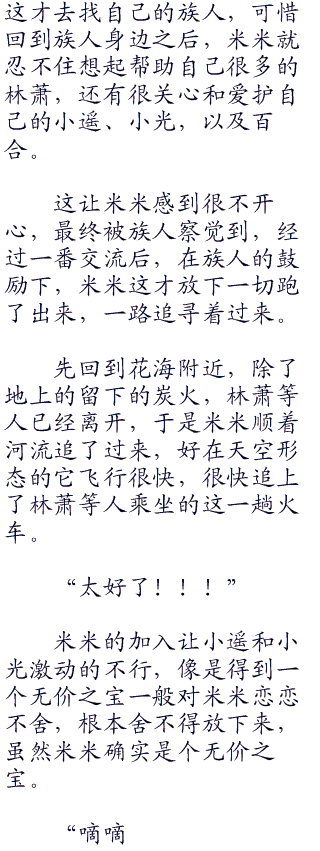 这才去找自己的族人，可惜
回到族人身边之后，米米就
忍不住想起帮助自己很多的
林萧，还有很关心和爱护自
己的小遥、小光，以及百
合。
这让米米感到很不开
心，最终被族人察觉到，经
过一番交流后，在族人的鼓
励下，米米这才放下一切跑
了出来，一路追寻着过来。
先回到花海附近，除了
地上的留下的炭火，林萧等
人已经离开，于是米米顺着
河流追了过来，好在天空形
态的它飞行很快，很快追上
了林萧等人乘坐的这一趟火
车。
“太好了！！！”
米米的加入让小遥和小
光激动的不行，像是得到一
个无价之宝一般对米米恋恋
不舍，根本舍不得放下来，
虽然米米确实是个无价之
宝。
“嘀嘀